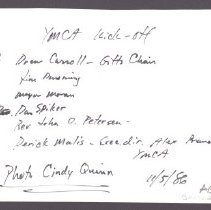 YMCA Kick-off
Drew Carroll - Gifts Chair
Jim
Mayor Moran
Dan Spiker
Rev John O. Petersen -
Derick Matis - Exec. dir.
YMCA
Photo Cindy Quinn
11/5/86